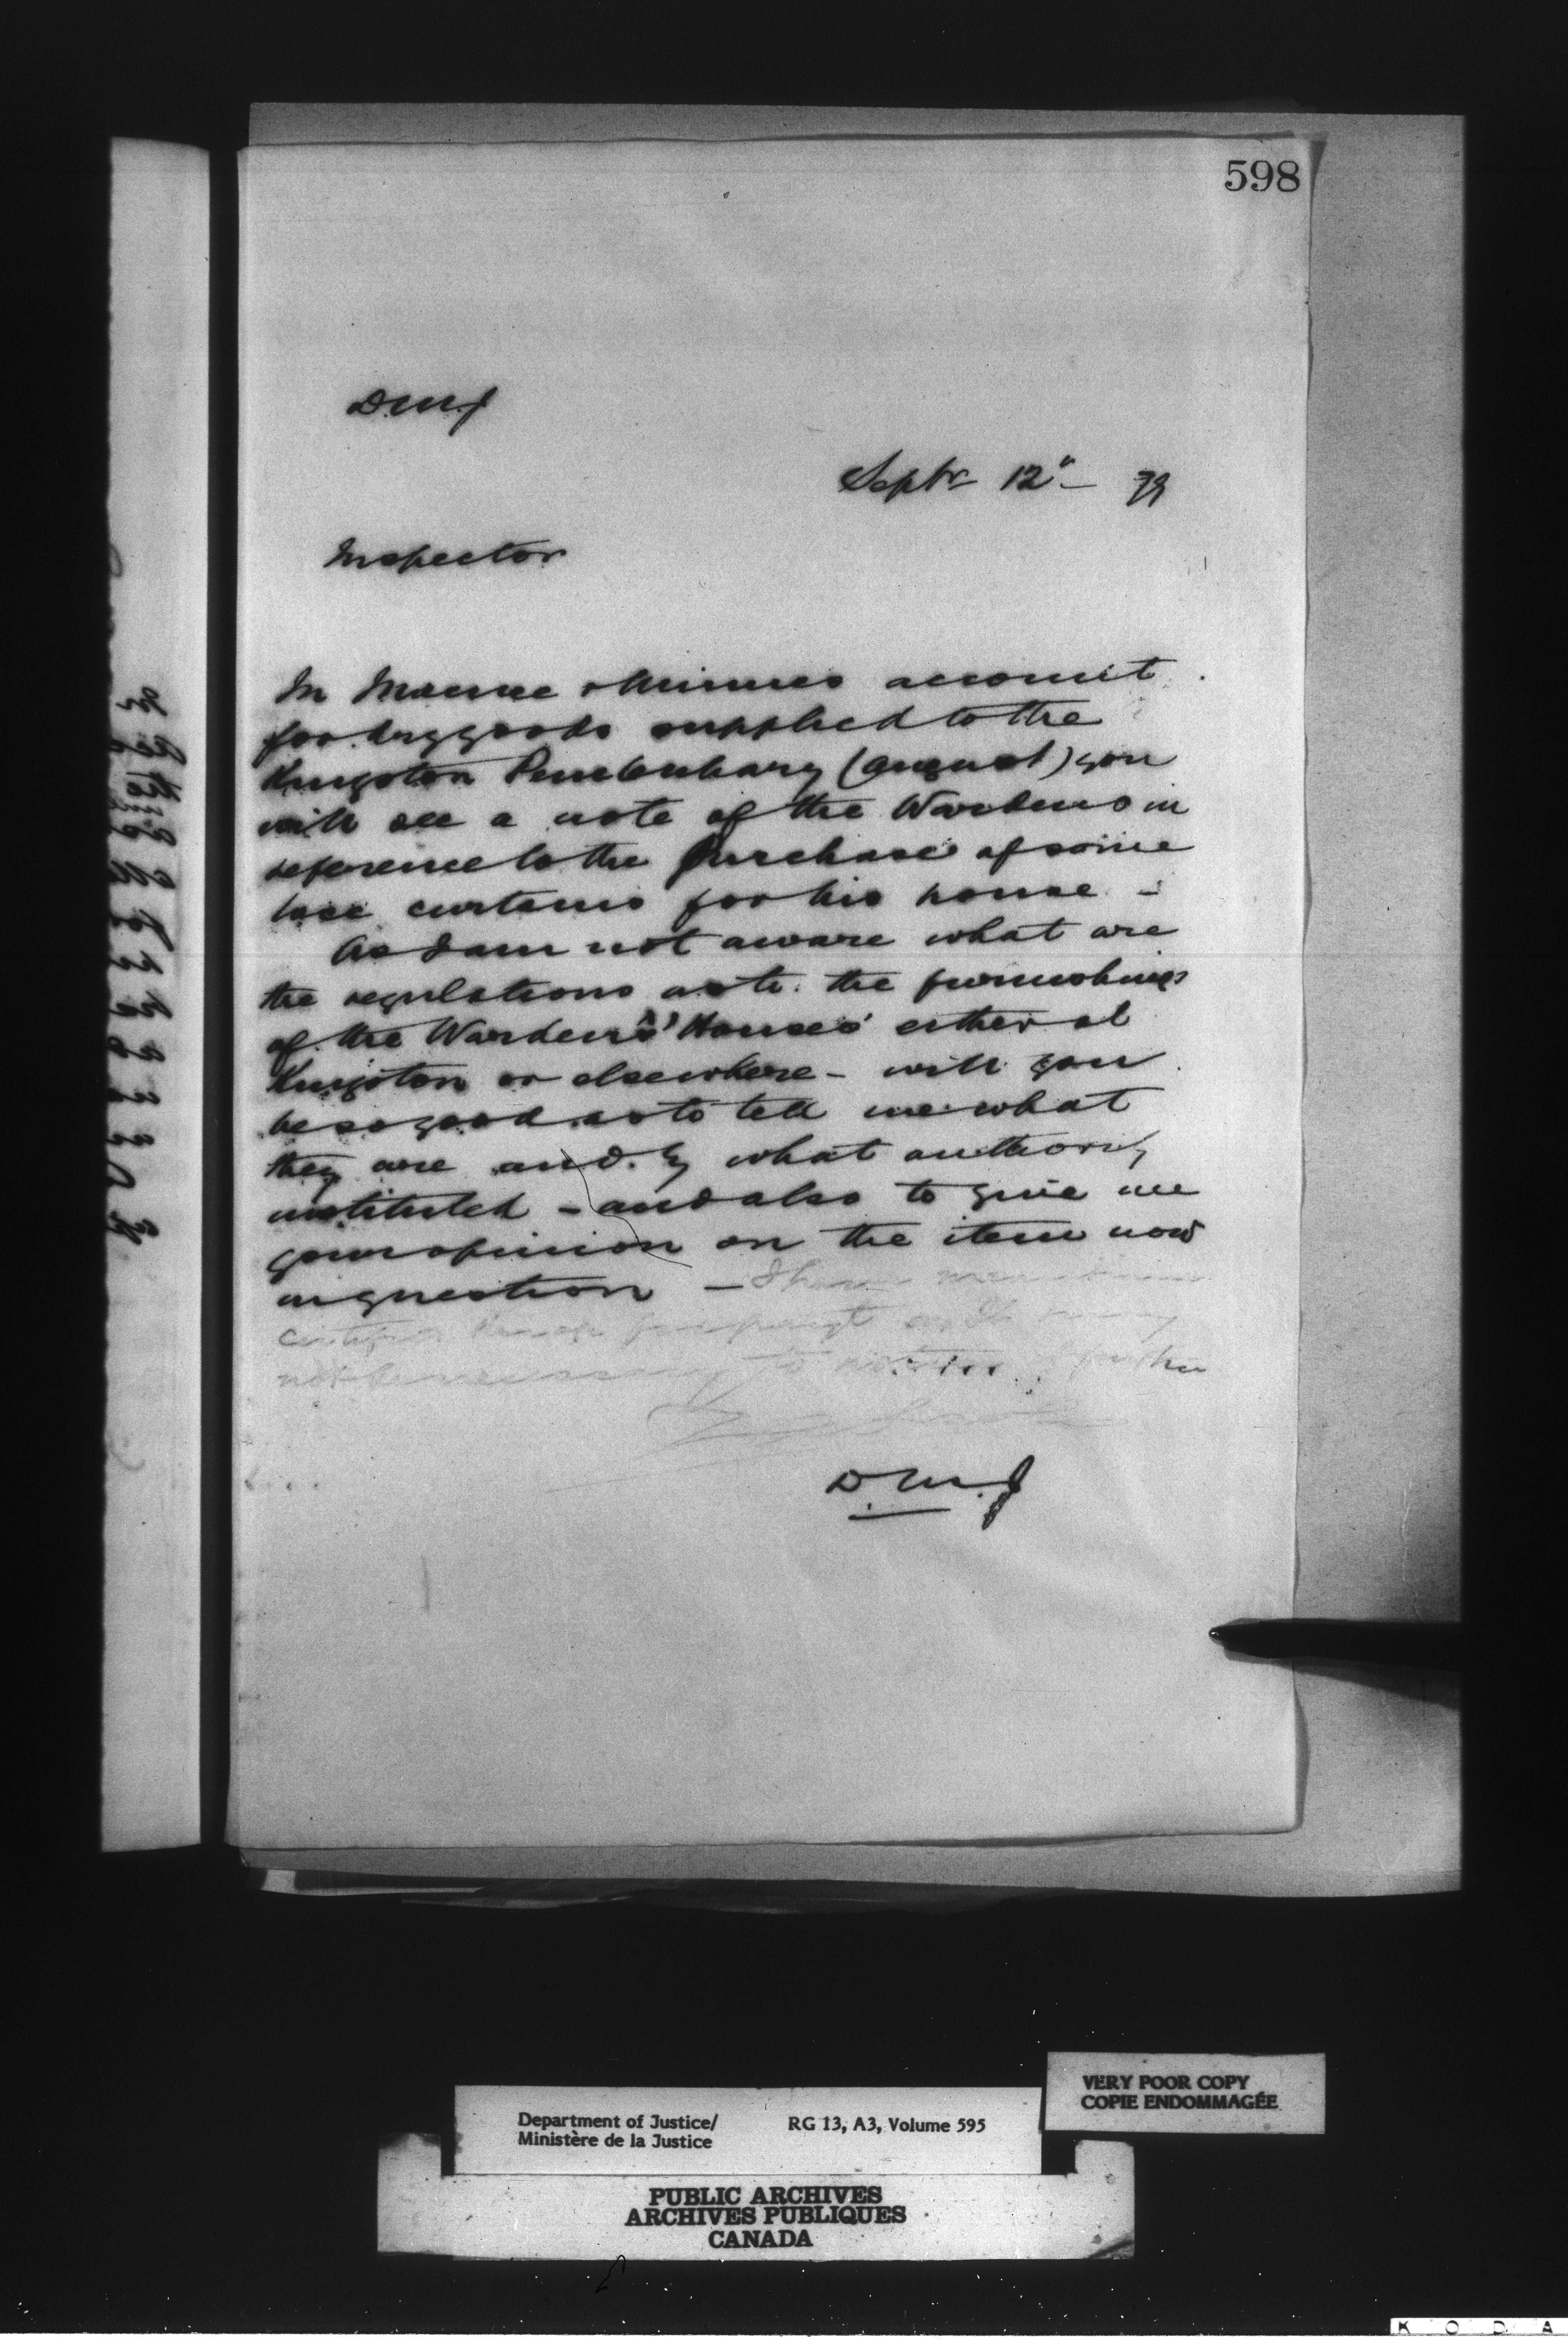 598
D.M.J
Septr 12" - 79
Inspector
In Macnee & Minnes account
for dry goods supplied to the
Kingston Penitentiary (August) you
will see a note of the Wardens in
reference to the purchase of some
lace curtains for his house -
As I am not aware what are
the regulations as to the furnishings
of the Warden's Houses either at
Kingston or elsewhere - will you
be so good as to tell me what
they are and by what authority
instituted - and also to give me
your opinion on the item now
in question - I have
not be necessary to further
D.M.J
VERY POOR COPY
COPIE ENDOMMAGÉE
Department of Justice/
Ministère de la Justice
RG 13, A3, Volume 595
PUBLIC ARCHIVES
ARCHIVES PUBLIQUES
CANADA
K O D A